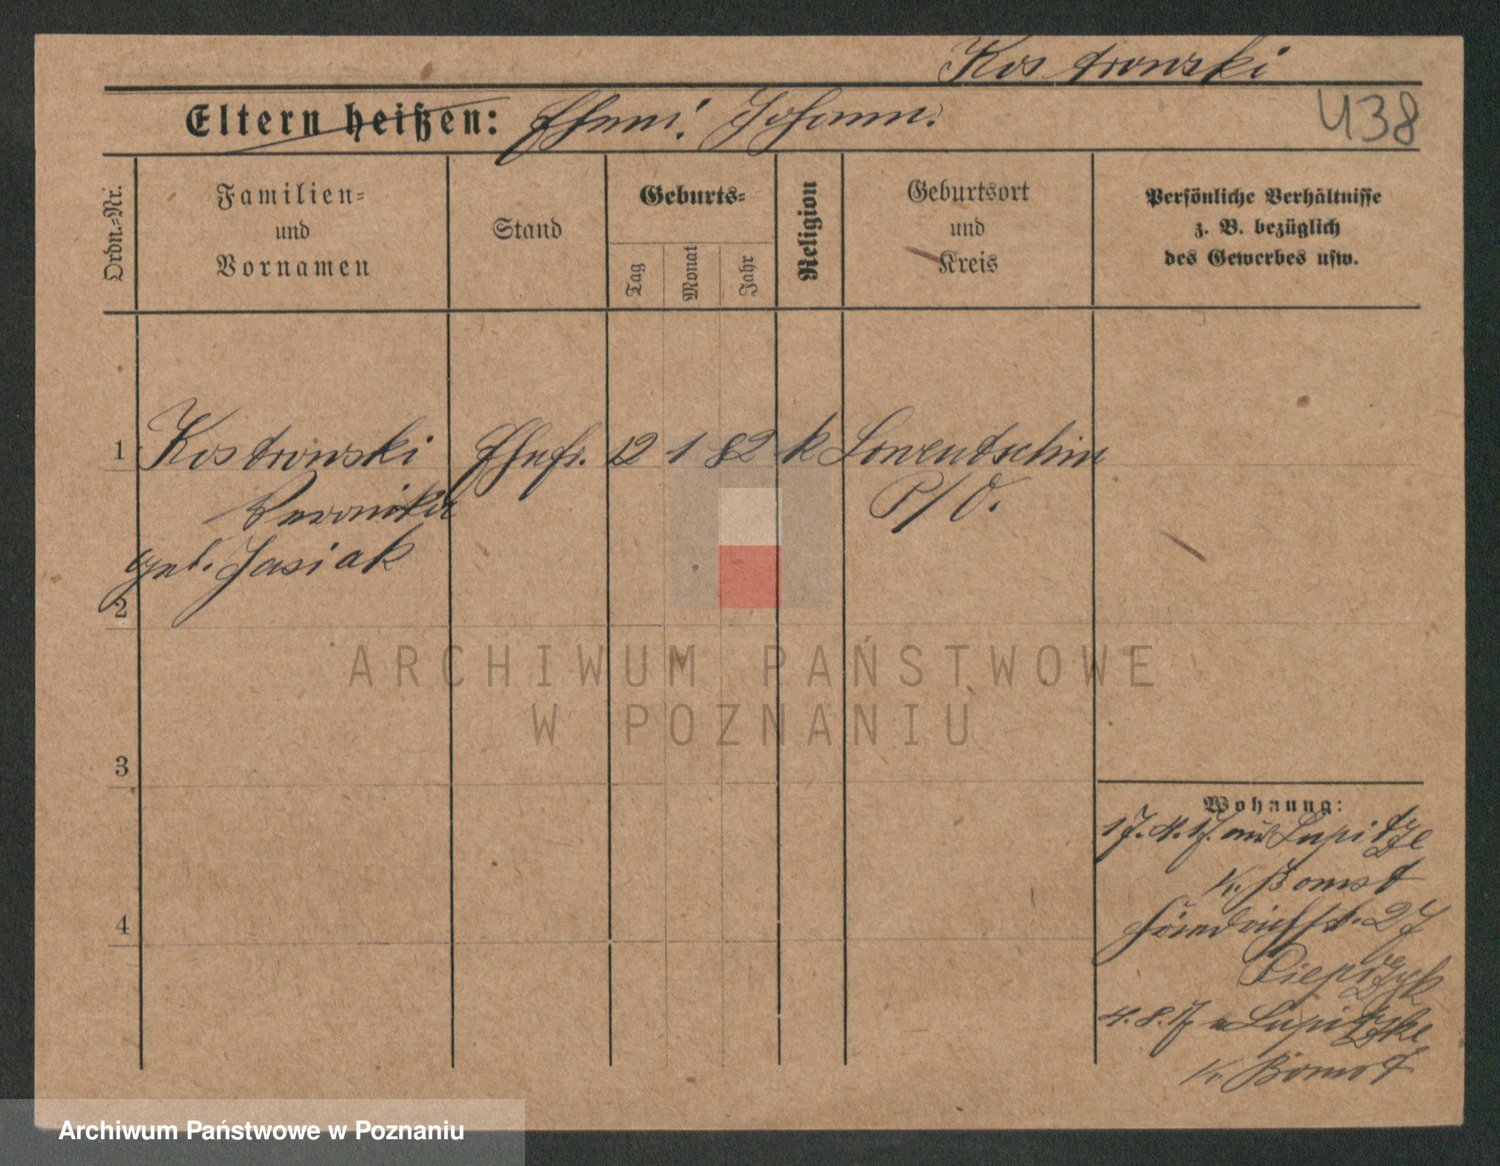 Kostrowski
Eltern heißen: Ehem. Johann.
438
Ordn.-Nr.
Familien-
und
Vornamen
Stand
Geburts-
Tag
Monat
Jahr
Religion
Geburtsort
und
Kreis
Persönliche Verhältnisse
z. B. bezüglich
des Gewerbes usw.
1 Kostrowski Ehefr. 12 1 82 k Lowentschin
Veronika P/O.
geb. Jasiak
2
3
4
Wohnung:
17.4.17. aus Lupitze
Kr. Bomst
Friedrichstr. 27
Pieprzyk
4.8.17 n Lupitzke
Kr. Bomst
ARCHIWUM PAŃSTWOWE
W POZNANIU
Archiwum Państwowe w Poznaniu